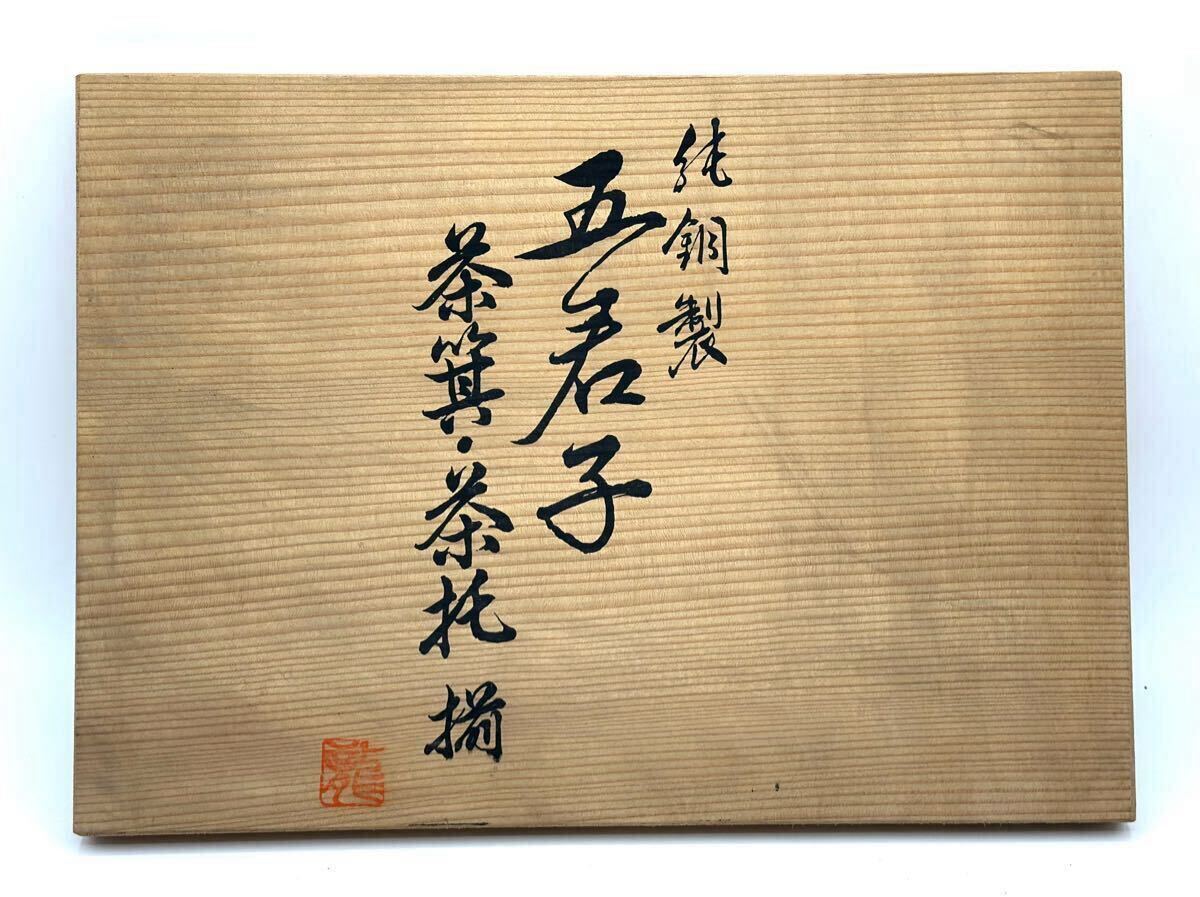 純銅製
五君子
茶箕・茶托 揃